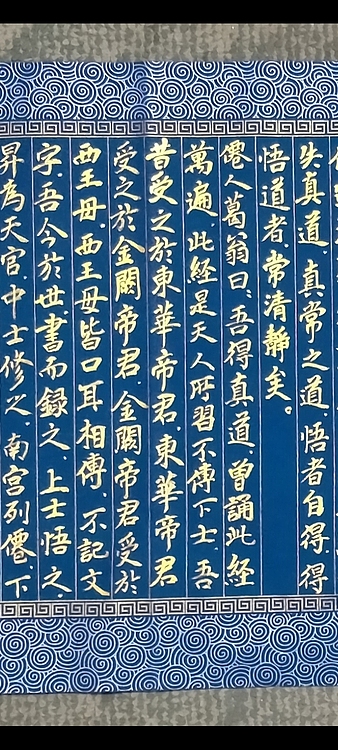 失真道。真常之道，悟者自得，得
悟道者，常清靜矣。
僊人葛翁曰，吾得真道，曾誦此經
萬遍，此經是天人所習，不傳下士，吾
昔受之於東華帝君，東華帝君
受之於金闕帝君，金闕帝君受於
西王母，西王母皆口耳相傳，不記文
字，吾今於世，書而錄之，上士悟之，
昇為天官，中士修之，南宮列僊，下